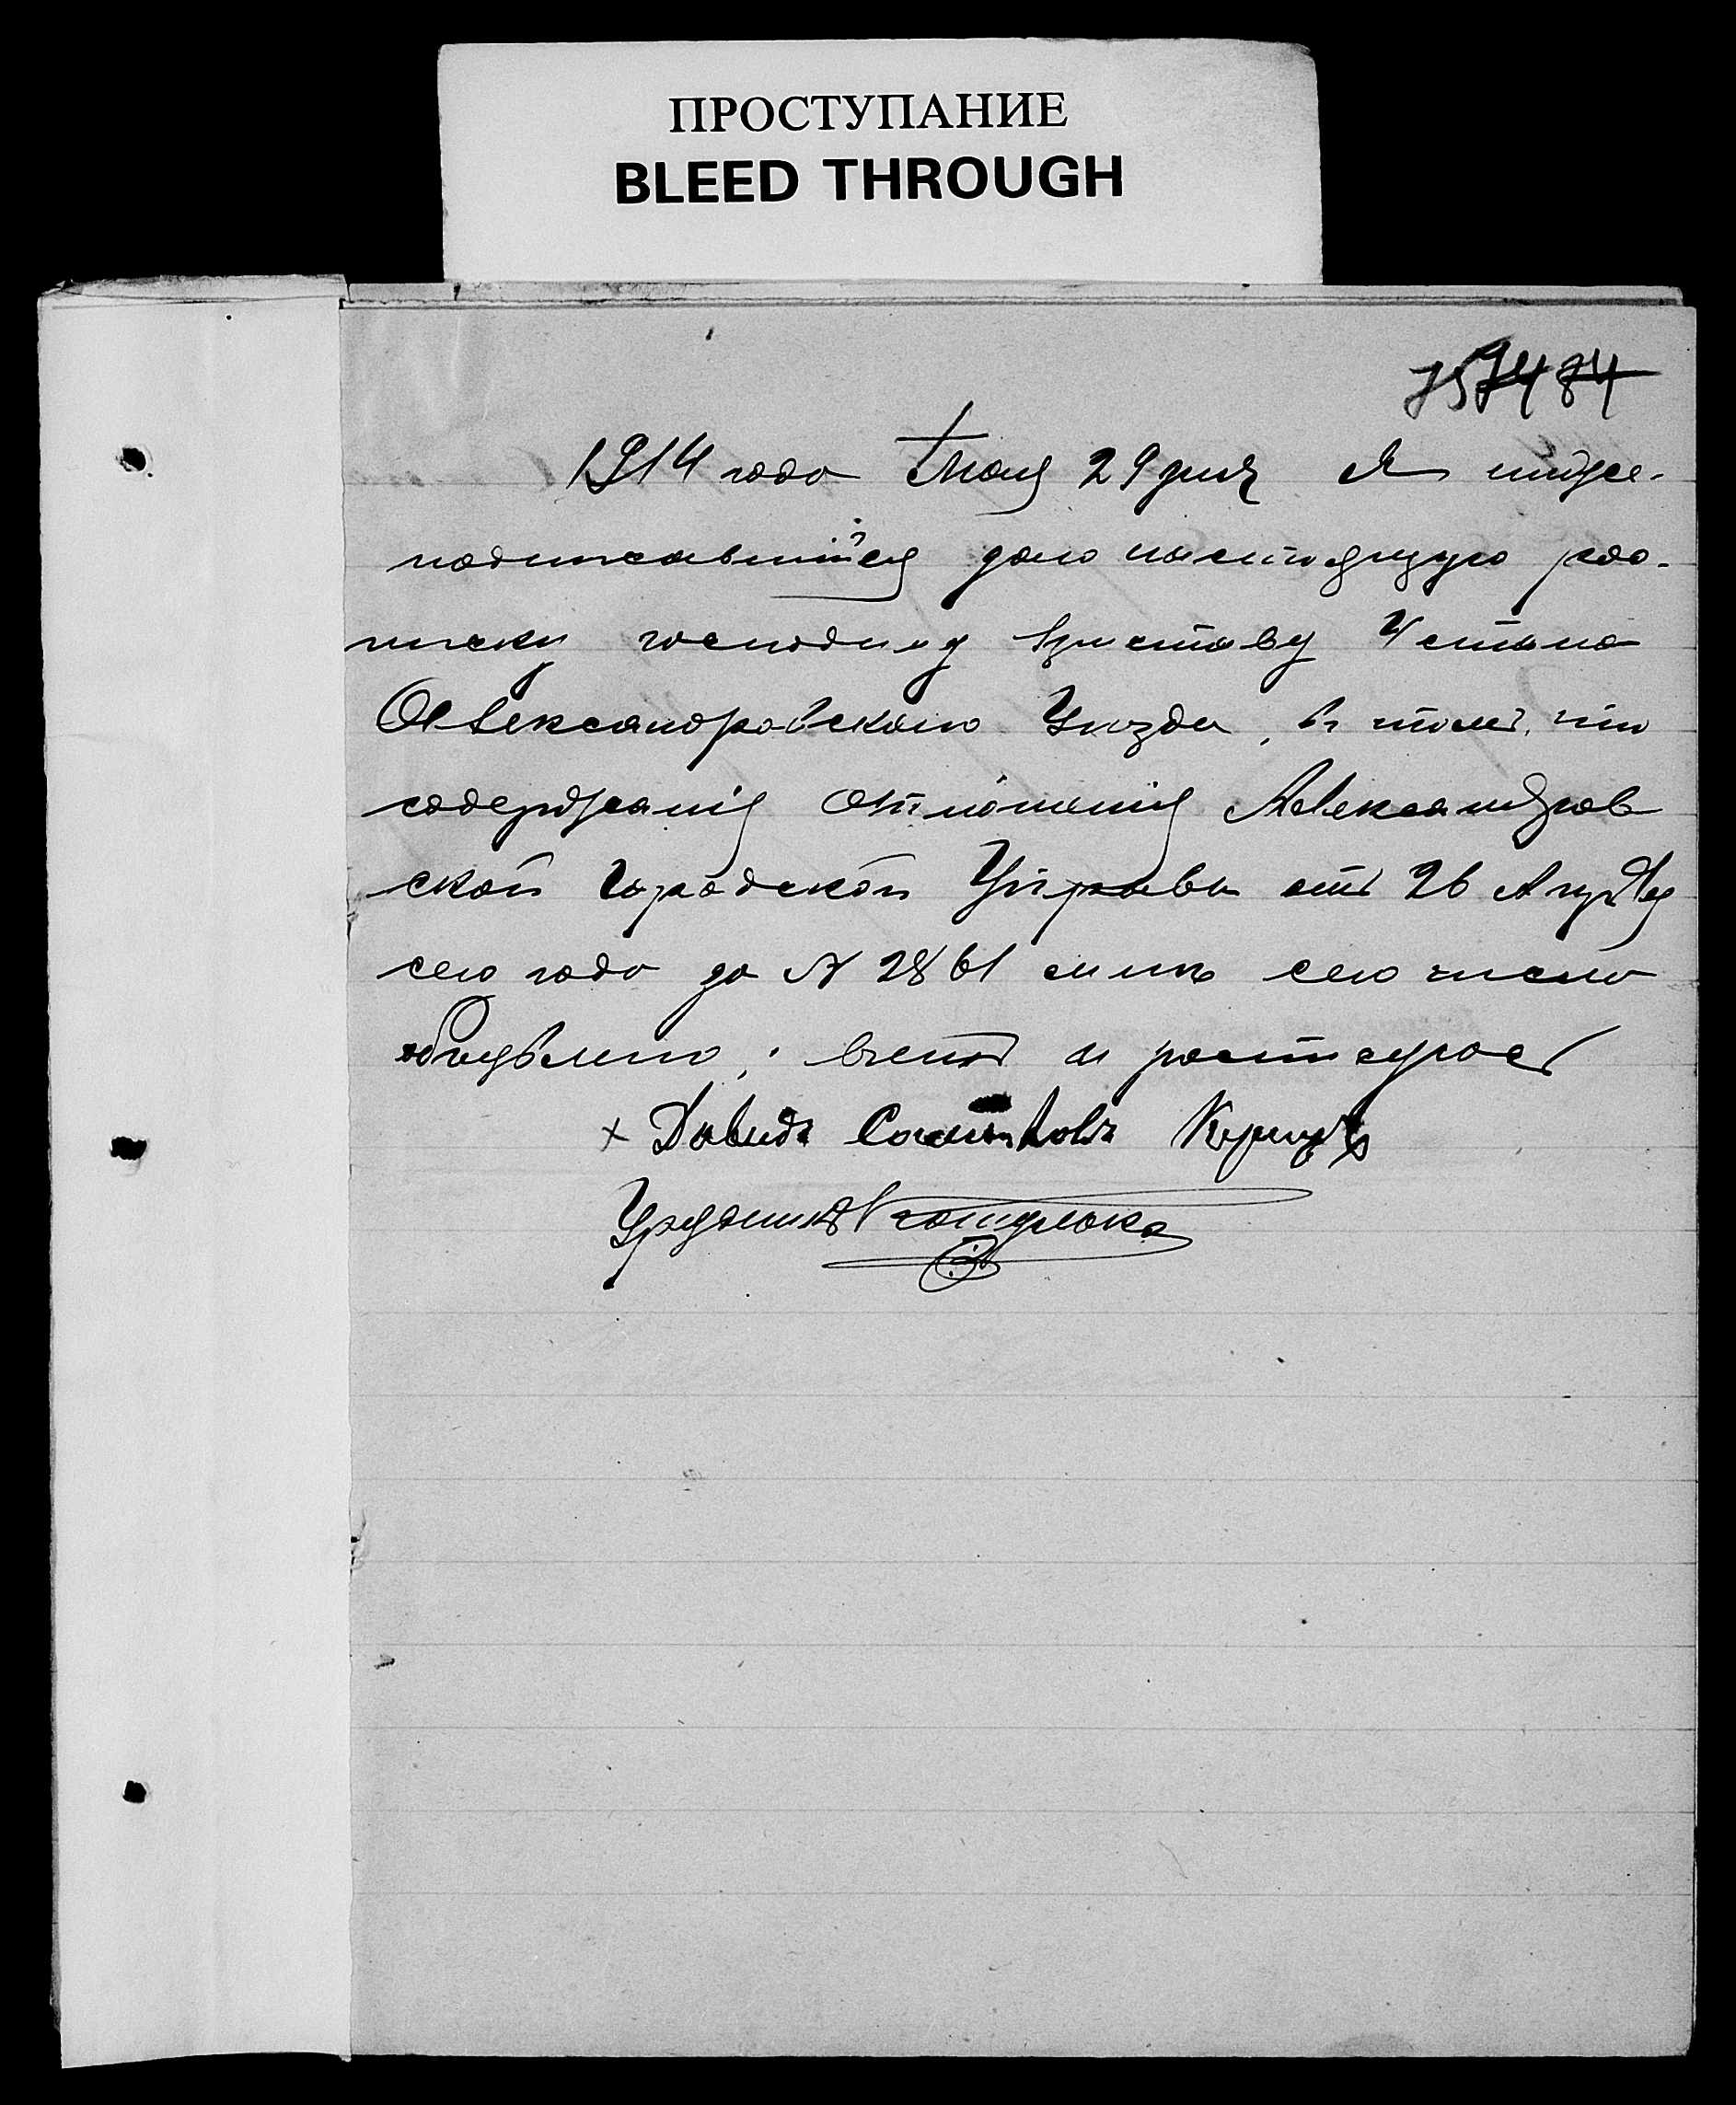 ПРОСТУПАНИЕ
BLEED THROUGH
1914 года Мая 29 дня Я ниже-
подписавшийся даю настоящую рос-
писку господину Приставу 4 стана
Александровскаго Уѣзда, въ томъ, что
содержанія отношенія Александров
ской Городской Управы отъ 26 Апрѣля
сего года за № 2861 мнѣ сего числа
объявлено; въ чемъ и росписуюсь
× Давидъ
Урядникъ